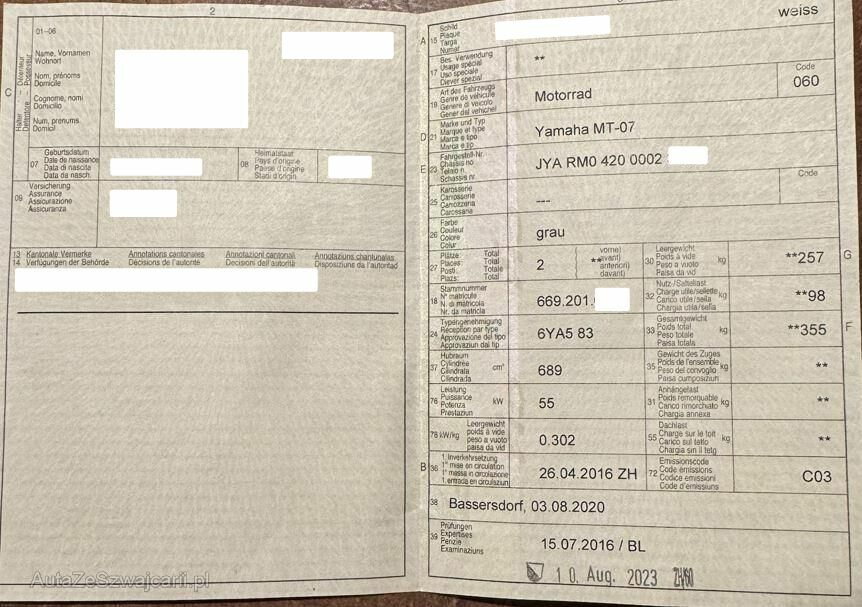 2
01-06
Name, Vornamen
Wohnort
Nom, prénoms
Domicile
Cognome, nomi
Domicilio
Num, prenums
Domicil
C
Halter – Détenteur
Detentore – Possessur
07
Geburtsdatum
Date de naissance
Data di nascita
Data da nasch.
08
Heimatstaat
Pays d'origine
Paese d'origine
Stadi d'origin
09
Versicherung
Assurance
Assicurazione
Assicuranza
13 Kantonale Vermerke Annotations cantonales Annotazioni cantonali Annotaziuns chantunalas
14 Verfügungen der Behörde Décisions de l'autorité Decisioni dell'autorità Disposiziuns da l'autoritad
AutaZeSzwajcarii.pl
weiss
A 15
Schild
Plaque
Targa
Numer
17
Bes. Verwendung
Usage spécial
Uso speciale
Diever spezial
**
19
Art des Fahrzeugs
Genre de véhicule
Genere di veicolo
Gener dal vehichel
Motorrad
Code
060
D 21
Marke und Typ
Marque et type
Marca e tipo
Marca e tip
Yamaha MT-07
E 23
Fahrgestell-Nr.
Châssis no
Telaio n.
Schassis nr.
JYA RM0 420 0002
25
Karosserie
Carrosserie
Carrozzeria
Carossaria
---
Code
26
Farbe
Couleur
Colore
Colur
grau
27
Plätze: Total
Places: Total
Posti: Totale
Plazs: Total
2
vorne)
avant)
anteriori)
davant)
**
30
Leergewicht
Poids à vide
Peso a vuoto
Paisa da vid
kg
**257
G
18
Stammnummer
N° matricule
N. di matricola
Nr. da matricla
669.201.
32
Nutz-/Sattellast
Charge utile/sellette
Carico utile/sella
Chargia utila/sella
kg
**98
24
Typengenehmigung
Réception par type
Approvazione del tipo
Approvaziun dal tip
6YA5 83
33
Gesamtgewicht
Poids total
Peso totale
Paisa totala
kg
**355
F
37
Hubraum
Cylindrée
Cilindrata
Cilindrada
cm³
689
35
Gewicht des Zuges
Poids de l'ensemble
Peso del convoglio
Paisa cumposiziun
kg
**
76
Leistung
Puissance
Potenza
Prestaziun
kW
55
31
Anhängelast
Poids remorquable
Carico rimorchiato
Chargia annexa
kg
**
78 kW/kg
Leergewicht
poids à vide
peso a vuoto
paisa da vid
0.302
55
Dachlast
Charge sur le toit
Carico sul tetto
Chargia sin il tetg
kg
**
B 36
1. Inverkehrsetzung
1re mise en circulation
1a messa in circolazione
1. entrada en circulaziun
26.04.2016 ZH
72
Emissionscode
Code émissions
Codice emissioni
Code d'emissiuns
C03
38
Bassersdorf, 03.08.2020
39
Prüfungen
Expertises
Perizie
Examinaziuns
15.07.2016 / BL
10. Aug. 2023